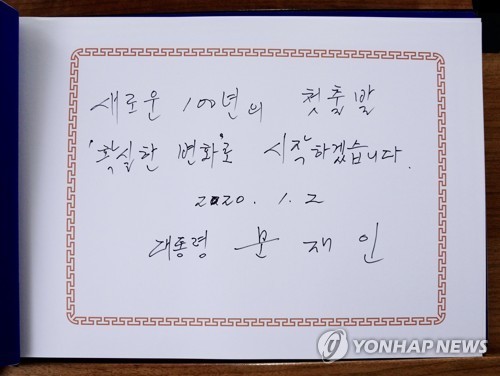 새로운 100년의 첫출발
'확실한 변화'로 시작하겠습니다.
2020. 1. 2
대통령 문 재 인
YONHAP NEWS